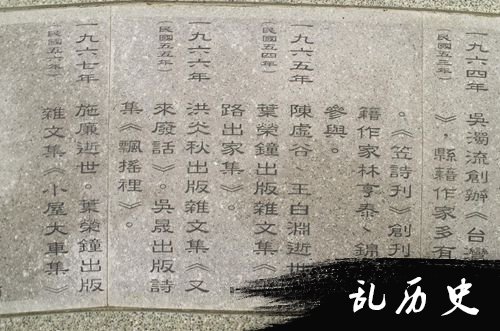 一九六四年 吳濁流創辦《台灣
(民國五三年) 》,縣籍作家多有
。《笠詩刊》創刊
籍作家林亨泰、錦
參與。
一九六五年 陳虛谷、王白淵逝世
(民國五四年) 葉榮鐘出版雜文集《
路出家集》。
一九六六年 洪炎秋出版雜文集《又
(民國五五年) 來廢話》。吳晟出版詩
集《飄搖裡》。
一九六七年 施廉逝世。葉榮鐘出版
(民國五六年) 雜文集《小屋大車集》
乱历史